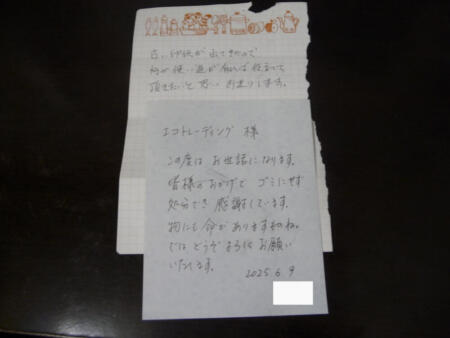 古い切手が出てきたので
何か使い道が有れば役立てて
頂きたいと思いお送りします。
エコトレーディング 様
この度は お世話になります。
皆様のおかげで ゴミにせず
処分でき 感謝しています。
物にも命がありますものね。
では どうぞ よろしく お願い
いたします。
2025.6.9